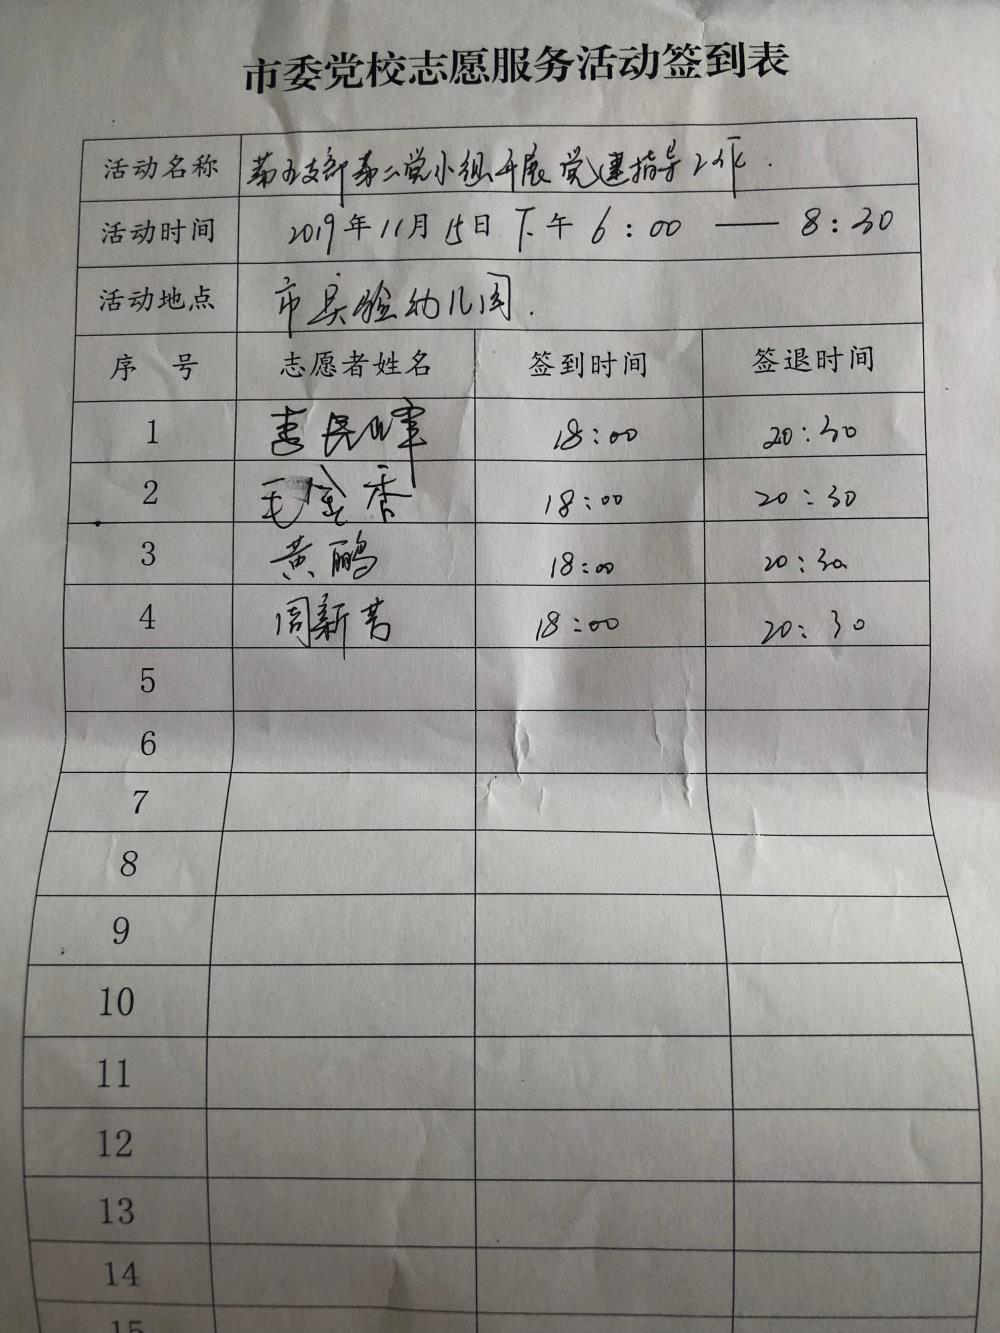 市委党校志愿服务活动签到表
活动名称 第五支部第二党小组开展党建指导工作.
活动时间 2019年11月15日下午6:00 —— 8:30
活动地点 市实验幼儿园.
序 号 志愿者姓名 签到时间 签退时间
1 18:00 20:30
2 毛金香 18:00 20:30
3 黄鹏 18:00 20:30
4 周新 18:00 20:30
5
6
7
8
9
10
11
12
13
14
15